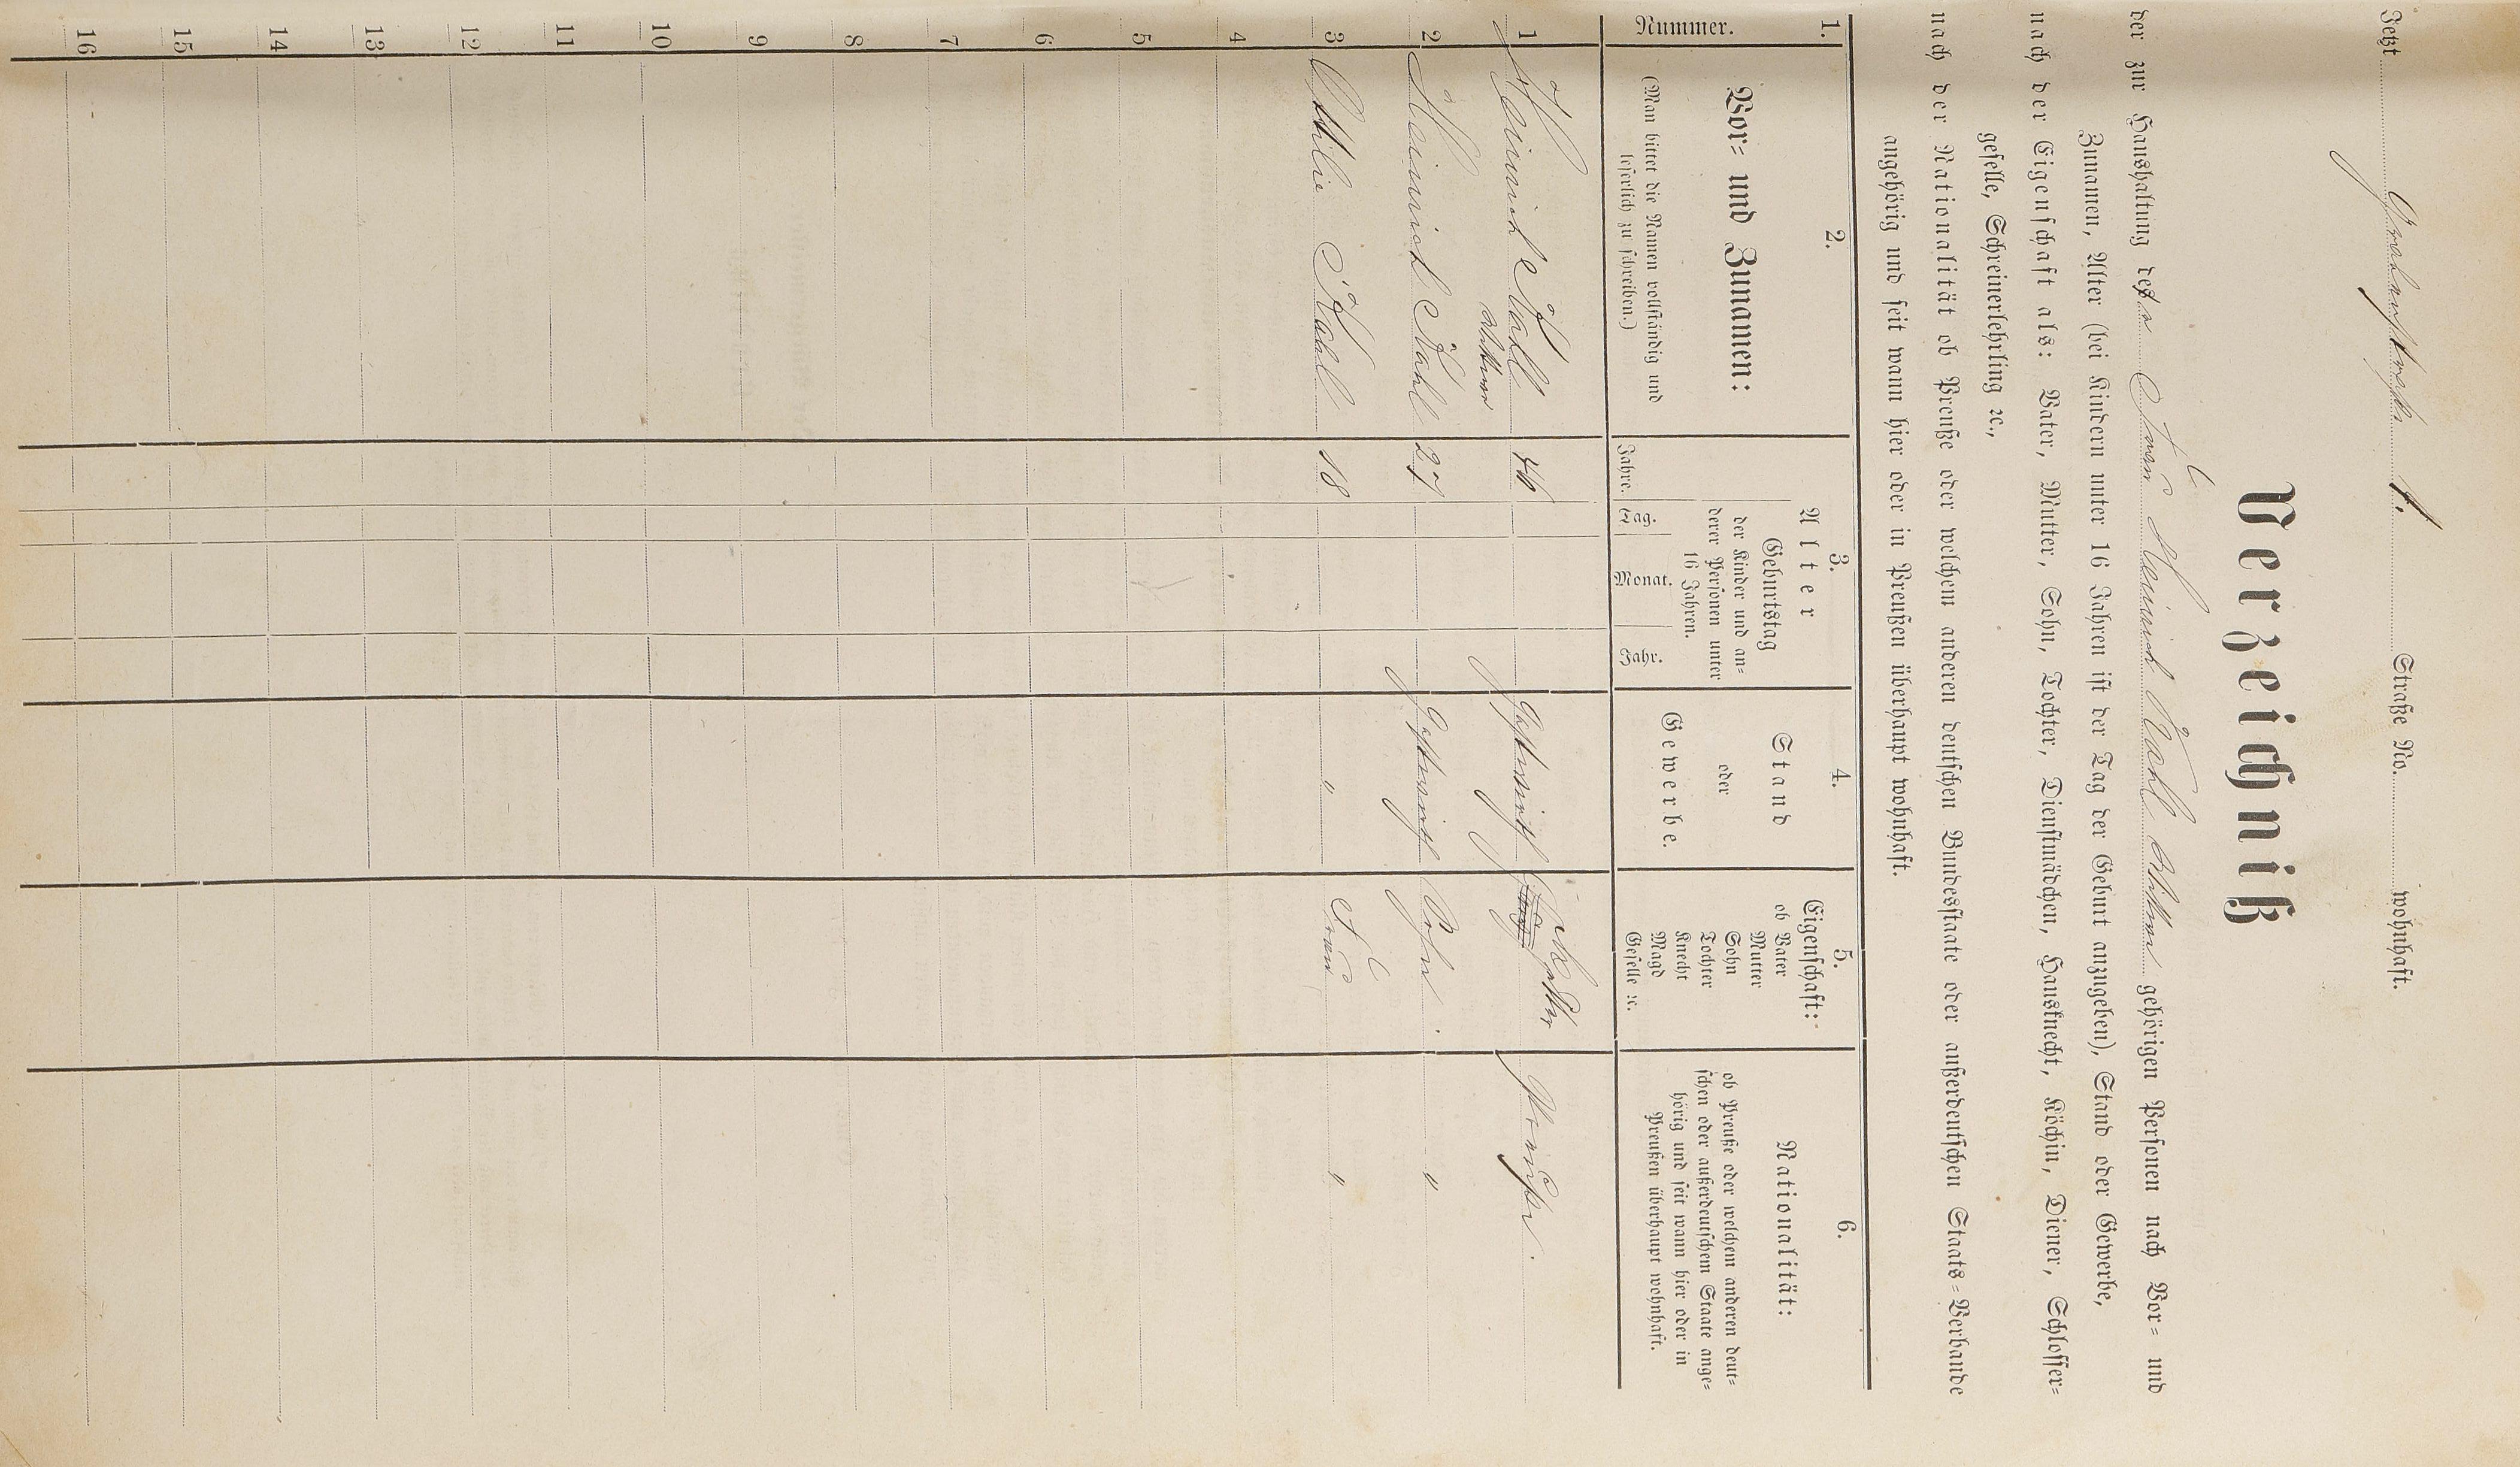 Jetzt Grabenstraße 1. Straße No. wohnhaft.
Verzeichniß
der zur Haushaltung der Frau Heinrich Nohl Wittwe gehörigen Personen nach Vor- und
Zunamen, Alter (bei Kindern unter 16 Jahren ist der Tag der Geburt anzugeben), Stand oder Gewerbe,
nach der Eigenschaft als: Vater, Mutter, Sohn, Tochter, Dienstmädchen, Hausknecht, Köchin, Diener, Schlosser-
geselle, Schreinerlehrling ꝛc.,
nach der Nationalität ob Preuße oder welchem anderen deutschen Bundesstaate oder außerdeutschen Staats-Verbande
angehörig und seit wann hier oder in Preußen überhaupt wohnhaft.
1. 2. 3. 4. 5. 6.
Nummer.
Vor- und Zunamen:
(Man bittet die Namen vollständig und
leserlich zu schreiben.)
Alter
Geburtstag
der Kinder und an-
derer Personen unter
16 Jahren.
Jahre. Tag. Monat. Jahr.
Stand
oder
Gewerbe.
Eigenschaft:
ob Vater
Mutter
Sohn
Tochter
Knecht
Magd
Geselle ꝛc.
Nationalität:
ob Preuße oder welchem anderen deut-
schen oder außerdeutschem Staate ange-
hörig und seit wann hier oder in
Preußen überhaupt wohnhaft.
1 Heinrich 46 Gastwirth Mutter Preuße.
Wittwe
2 Heinrich 27 Gastwirth Sohn. "
3 18 " Frau "
4
5
6
7
8
9
10
11
12
13
14
15
16